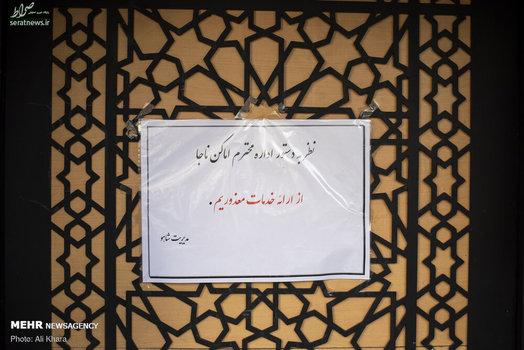 صراط
seratnews.ir
نظر به دستور اداره محترم اماکن ناجا
از ارائه خدمات معذوریم.
مدیریت شاهو
MEHR NEWSAGENCY
Photo: Ali Khara